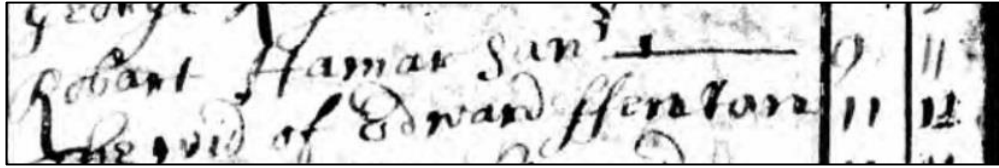 George
Robart Hamar Sanr 9 11
The wid of Edward ffentone 11 12